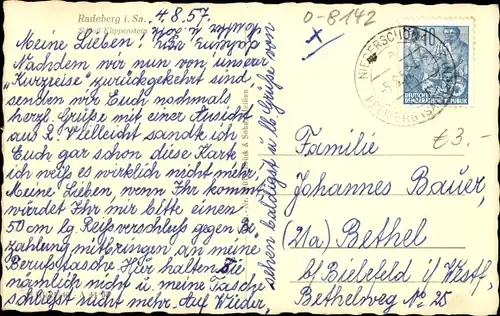 Radeberg i. Sa.
Schloß Klippenstein
4.8.57.
0-8142
Meine Lieben!
Nachdem wir nun von unser
"Kurzreise" zurückgekehrt sind
senden wir Euch nochmals
herzl. Grüße mit einer Ansicht
aus R. Vielleicht sandte ich
Euch gar schon diese Karte
ich weiß es wirklich nicht mehr.
Meine Lieben, wenn Ihr kommt,
würdet Ihr mir bitte einen
50 cm lg. Reißverschluß gegen Be-
zahlung mitbringen an meine
Berufstasche Hier halten sie
nämlich nicht u. meine Tasche
schließt nicht mehr. Auf Wieder,
sehen baldigst u. lb. Grüße von
10
DEUTSCHE
DEMOKRATISCHE REPUBLIK
€ 3.-
Familie
Johannes Bauer,
(21a) Bethel
b/ Bielefeld i/ Westf,
Bethelweg No 25